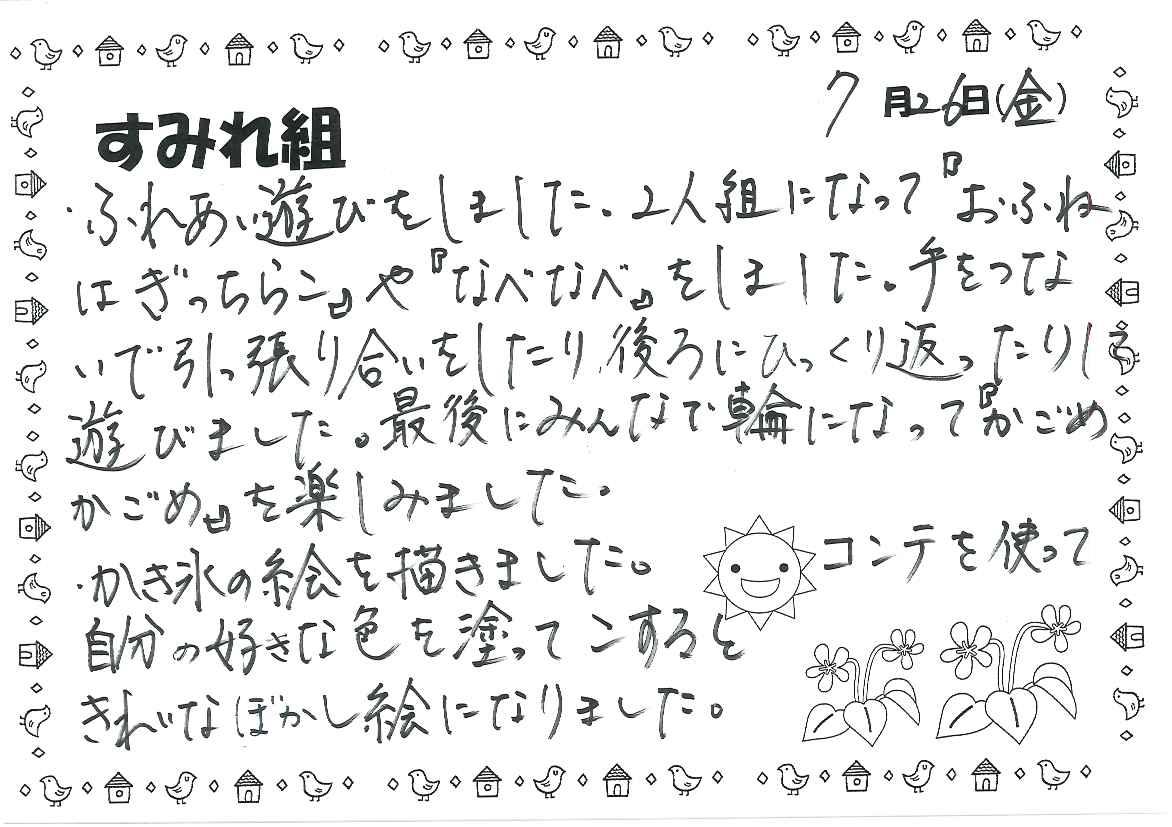 7月26日(金)
すみれ組
・ふれあい遊びをしました。2人組になって『おふね
はぎっちらこ』や『なべなべ』をしました。手をつな
いで引っ張り合いをしたり、後ろにひっくり返ったりして
遊びました。最後にみんなで輪になって『かごめ
かごめ』を楽しみました。
・かき氷の絵を描きました。コンテを使って
自分の好きな色を塗ってこすると
きれいなぼかし絵になりました。